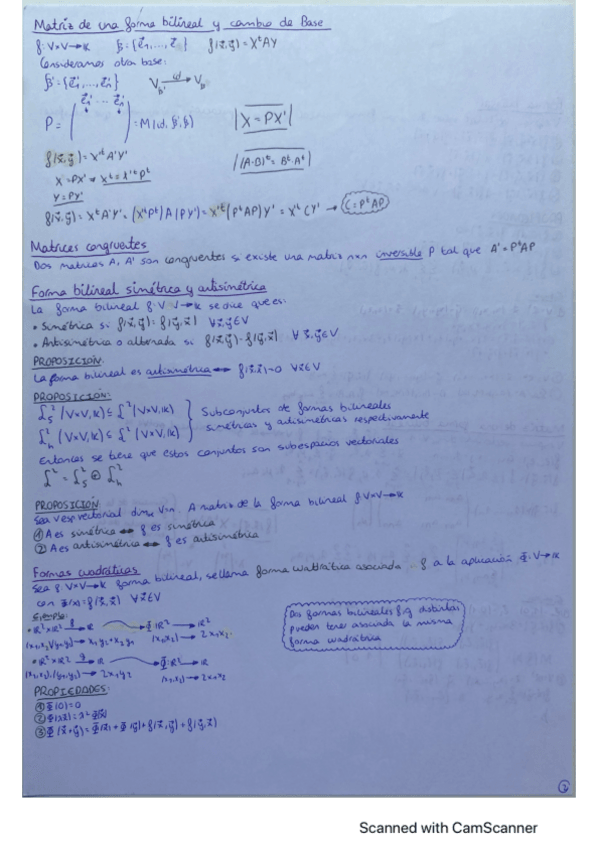 Matriz de una forma bilineal y cambio de Base
f: V×V→K   B={e⃗1,...,e⃗ }   f(x⃗,y⃗)=XᵗAY
Consideramos otra base:
B'={e⃗'1,...,e⃗'n}   V_B' —id→ V_B
e⃗'1 ... e⃗'n
P=(      )=M(id,B',B)   |X=PX'|
f(x⃗,y⃗)=X'ᵗA'Y'   |(A·B)ᵗ=Bᵗ·Aᵗ|
X=PX' ⇒ Xᵗ=X'ᵗPᵗ
Y=PY'
f(x⃗,y⃗)=XᵗA'Y'=(X'ᵗPᵗ)A(PY')=X'ᵗ(PᵗAP)Y'=XᵗCY' → C=PᵗAP
Matrices congruentes
Dos matrices A, A' son congruentes si existe una matriz n×n inversible P tal que A'=PᵗAP
Forma bilineal simétrica y antisimétrica
La forma bilineal f: V V→K se dice que es:
• Simétrica si f(x⃗,y⃗)=f(y⃗,x⃗) ∀x⃗,y⃗∈V
• Antisimétrica o alternada si f(x⃗,y⃗)=-f(y⃗,x⃗) ∀x⃗,y⃗∈V
PROPOSICIÓN:
La forma bilineal es antisimétrica ⟺ f(x⃗,x⃗)=0 ∀x⃗∈V
PROPOSICIÓN:
L²s(V×V,K)⊆L²(V×V,K) } Subconjuntos de formas bilineales
L²h(V×V,K)⊆L²(V×V,K) } simétricas y antisimétricas respectivamente
Entonces se tiene que estos conjuntos son subespacios vectoriales
L²=L²s⊕L²h
PROPOSICIÓN:
Sea V esp vectorial dim V=n. A matriz de la forma bilineal f: V×V→K
① A es simétrica ⟺ f es simétrica
② A es antisimétrica ⟺ f es antisimétrica
Formas cuadráticas
Sea f: V×V→K forma bilineal, se llama forma cuadrática asociada a f a la aplicación Φ: V→K
con Φ(x)=f(x⃗,x⃗) ∀x⃗∈V
Ejemplo:
• R²×R² —f→ R   Φ: R² → R
(x1,x2)(y1,y2)→x1y2+x2y1   (x1,x2)→2x1x2
• R²×R² —g→ R   Φ: R² → R
(x1,x2),(y1,y2)→2x1y2   (x1,x2)→2x1x2
Dos formas bilineales f,g distintas
pueden tener asociada la misma
forma cuadrática
PROPIEDADES:
① Φ(0)=0
② Φ(λx⃗)=λ²Φ(x⃗)
③ Φ(x⃗+y⃗)=Φ(x⃗)+Φ(y⃗)+f(x⃗,y⃗)+f(y⃗,x⃗)
Scanned with CamScanner